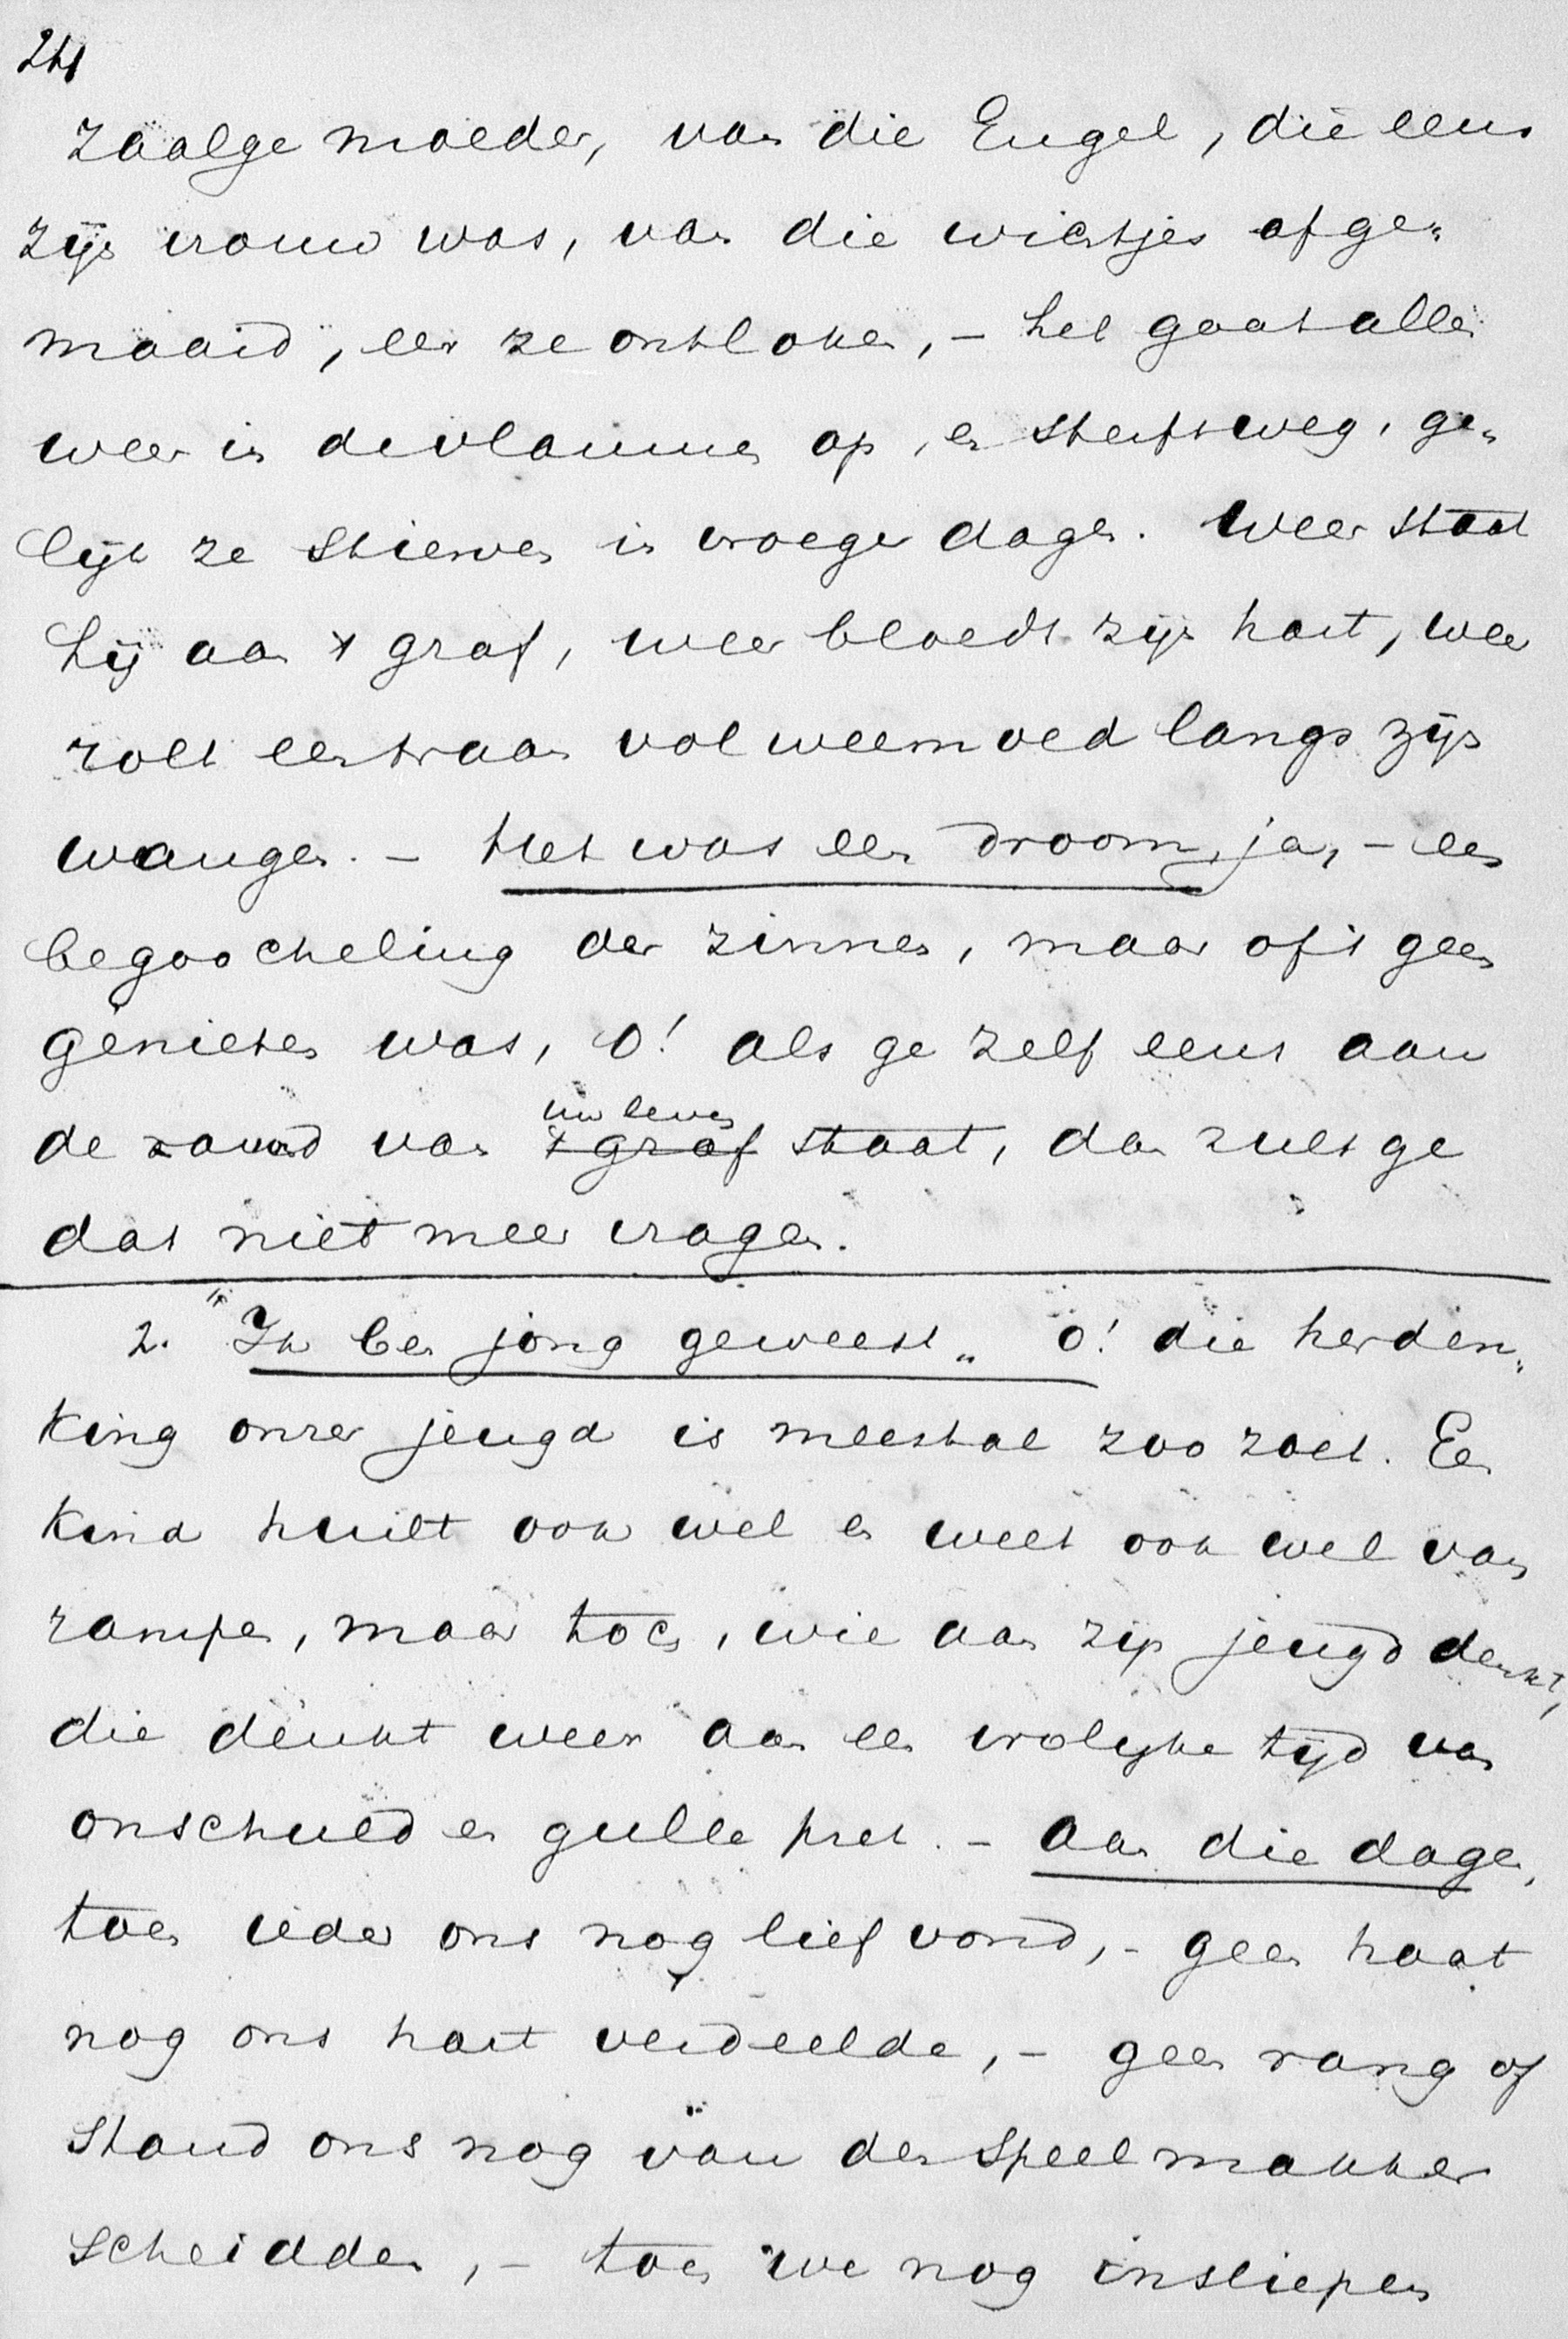 24
zaalge moeder, van die Engel, die eens
zijn vrouw was, van die wichtjes afge„
maaid, eer ze ontloken, – het gaat alles
weer in de vlammen op, en sterft weg, ge„
lijk ze stierven in vroeger dagen. Weer staat
hij aan 't graf, weer bloedt zijn hart, weer
rolt een traan vol weemoed langs zijn
wangen. – Het was een droom, ja, – een
begoocheling der zinnen, maar of 't geen
genieten was, O! als ge zelf eens aan
uw leven
de avond van 't graf staat, dan zult ge
dat niet meer vragen.
2. "Ik ben jong geweest„ o! die herden„
king onzer jeugd is meestal zoo zoet. Een
kind huilt ook wel en weet ook wel van
rampen, maar toch, wie aan zijn jeugd denkt,
die denkt weer aan een vrolijke tijd van
onschuld en gulle pret. – Aan die dagen,
toen ieder ons nog lief vond, – geen haat
nog ons hart verdeelde, – geen rang of
stand ons nog van den speelmakker
scheidden, – toen we nog insliepen